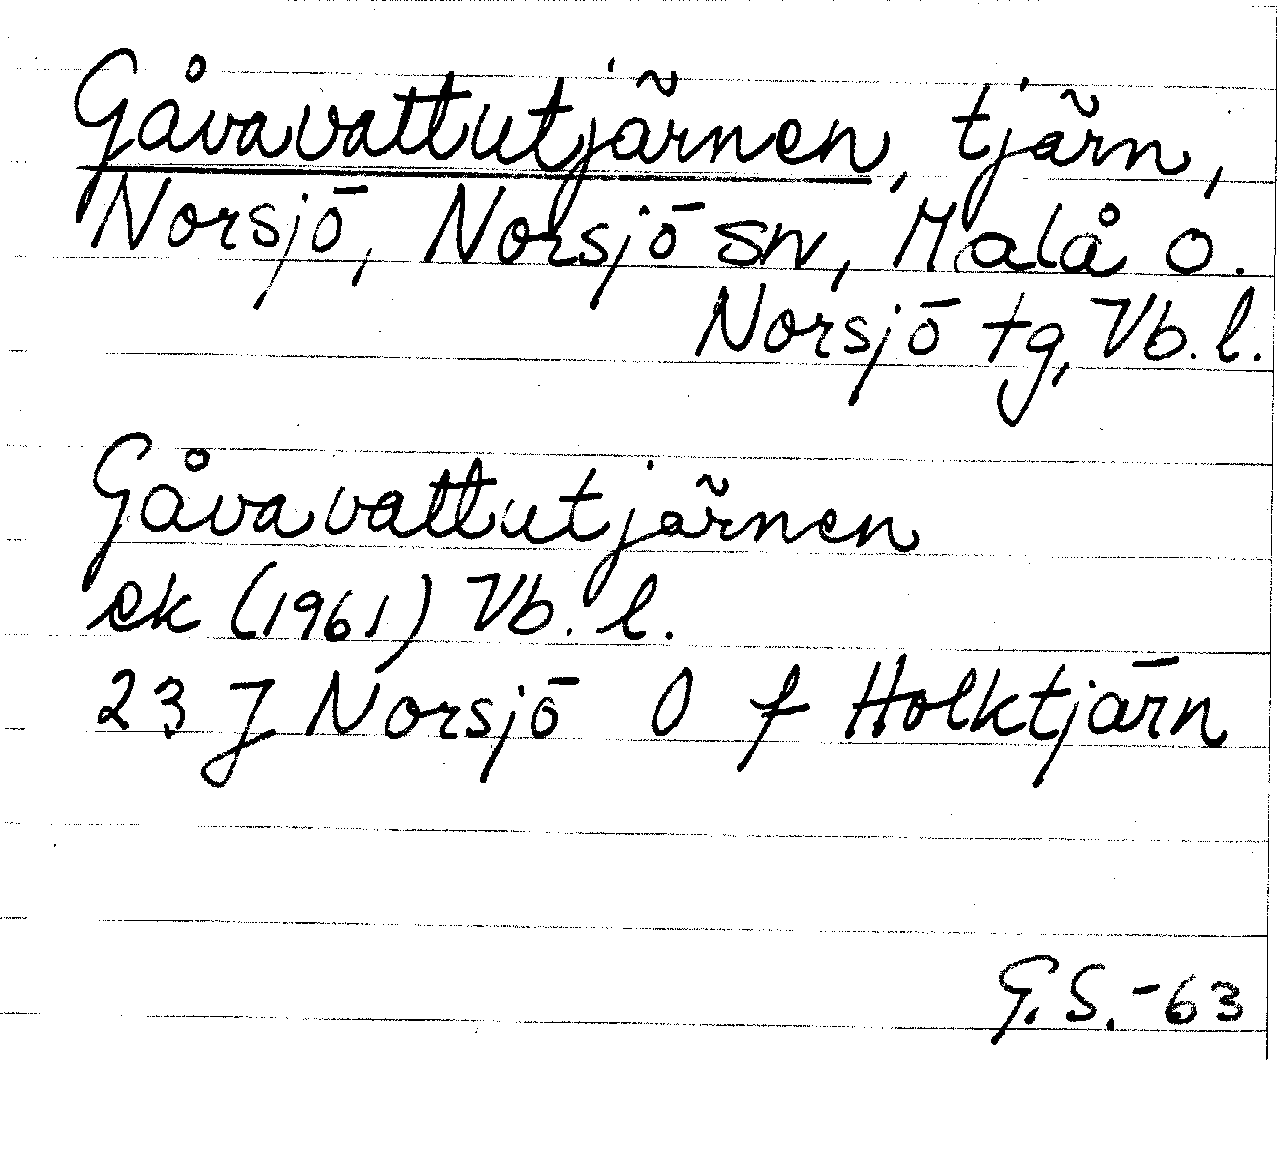 Gåvavattutjärnen, tjärn,
Norsjö, Norsjö sn, Malå o.
Norsjö tg, Vb. l.
Gåvavattutjärnen
ek (1961) Vb. l.
23 J Norsjö O f Holktjärn
G. S. -63